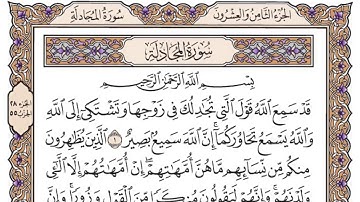 الجزء الثامن والعشرون
سورة المجادلة
سُورَةُ المُجَادلَة
بِسْمِ اللَّهِ الرَّحْمَٰنِ الرَّحِيمِ
قَدْ سَمِعَ اللَّهُ قَوْلَ الَّتِي تُجَٰدِلُكَ فِي زَوْجِهَا وَتَشْتَكِي إِلَى اللَّهِ
وَاللَّهُ يَسْمَعُ تَحَاوُرَكُمَا إِنَّ اللَّهَ سَمِيعٌ بَصِيرٌ ١ الَّذِينَ يُظَٰهِرُونَ
مِنكُم مِّن نِّسَآئِهِم مَّا هُنَّ أُمَّهَٰتِهِمْ إِنْ أُمَّهَٰتُهُمْ إِلَّا الَّٰٓـِٔي
وَلَدْنَهُمْ وَإِنَّهُمْ لَيَقُولُونَ مُنكَرًا مِّنَ الْقَوْلِ وَزُورًا وَإِنَّ
الجزء ٢٨
الحزب ٥٥